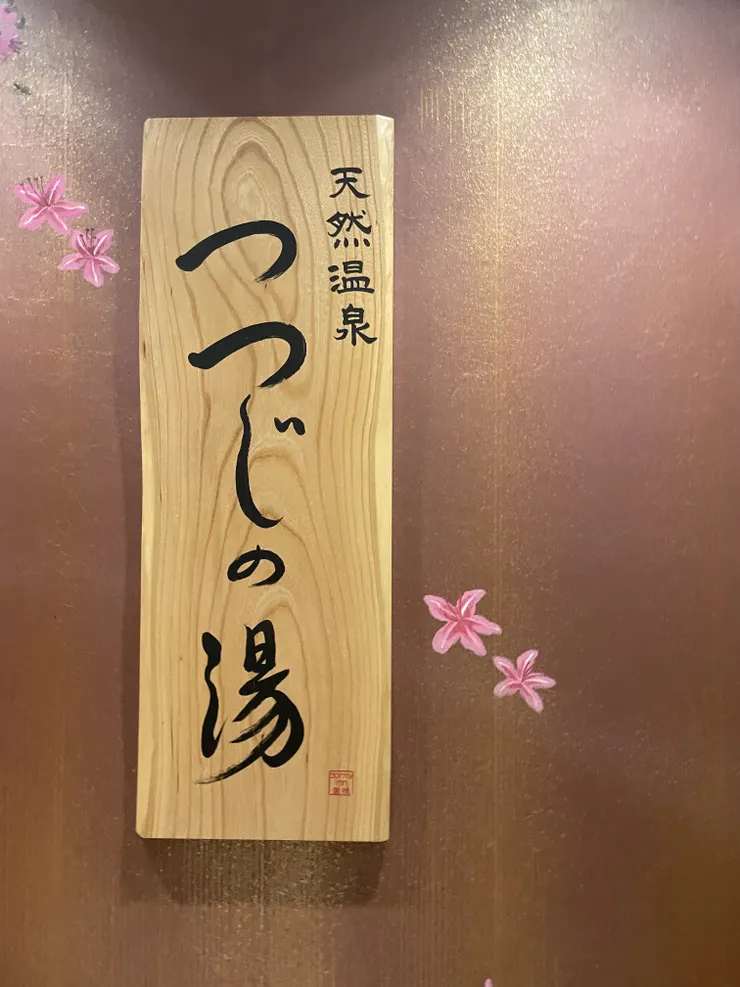 天然温泉
つつじの湯